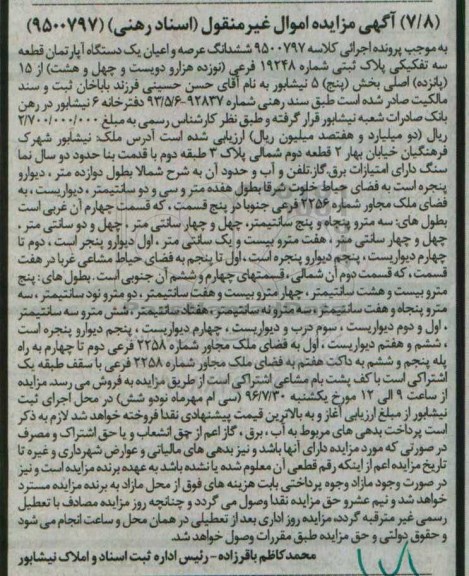 (۷/۸) آگهی مزایده اموال غیر منقول (اسناد رهنی) (۹۵۰۰۷۹۷)
به موجب پرونده اجرائی کلاسه ۹۵۰۰۷۹۷ ششدانگ عرصه و اعیان یک دستگاه آپارتمان قطعه
سه تفکیکی پلاک ثبتی شماره ۱۹۲۴۸ فرعی (نوزده هزارو دویست و چهل و هشت) از ۱۵
(پانزده) اصلی بخش (پنج) ۵ نیشابور به نام آقای حسن حسینی فرزند باباخان ثبت و سند
مالکیت صادر شده است طبق سند رهنی شماره ۹۲۸۳۷-۹۳/۵/۶ دفترخانه ۶ نیشابور در رهن
بانک صادرات شعبه نیشابور قرار گرفته و طبق نظر کارشناس رسمی به مبلغ ۲/۷۰۰/۰۰۰/۰۰۰
ریال (دو میلیارد و هفتصد میلیون ریال) ارزیابی شده است آدرس ملک: نیشابور شهرک
فرهنگیان خیابان بهار ۲ قطعه دوم شمالی پلاک ۳ طبقه دوم با قدمت بنا حدود دو سال نما
سنگ دارای امتیازات برق.گاز.تلفن و آب و حدود آن به شرح شمالا بطول دوازده متر ، دیوارو
پنجره است به فضای حیاط خلوت شرقا بطول هفده متر و سی و دو سانتیمتر ، دیواریست ، به
فضای ملک مجاور شماره ۲۲۵۶ فرعی جنوبا در پنج قسمت ، که قسمت چهارم آن غربی است
بطول های: سه مترو پنجاه و پنج سانتیمتر، چهل و چهار سانتی متر ، چهل و دو سانتی متر ،
چهل و چهار سانتی متر ، هفت مترو بیست و یک سانتی متر ، اول دیوارو پنجر است ، دوم تا
چهارم دیواریست ، پنجم دیوارو پنجره است ، اول تا پنجم به فضای حیاط مشاعی غربا در هفت
قسمت ، که قسمت دوم آن شمالی ، قسمتهای چهارم و ششم آن جنوبی است . بطول های : پنج
مترو بیست و هشت سانتیمتر ، چهار مترو بیست و هفت سانتیمتر ، دو مترو نود سانتیمتر ، سه
مترو پنجاه و هفت سانتیمتر ، سه مترو نه سانتیمتر ، هفتاد سانتیمتر ، شش مترو سه سانتیمتر
، اول و دوم دیواریست ، سوم درب و دیواریست ، چهارم دیواریست ، پنجم دیوارو پنجره است
، ششم و هفتم دیواریست ، اول به فضای ملک مجاور شماره ۲۲۵۸ فرعی دوم تا چهارم به راه
پله پنجم و ششم به داکت هفتم به فضای ملک مجاور شماره ۲۲۵۸ فرعی با سقف طبقه یک
اشتراکی است با کف پشت بام مشاعی اشتراکی است از طریق مزایده به فروش می رسد. مزایده
از ساعت ۹ الی ۱۲ مورخ یکشنبه ۹۶/۷/۳۰ (سی ام مهرماه نودو شش) در محل اجرای ثبت
نیشابور از مبلغ ارزیابی آغاز و به بالاترین قیمت پیشنهادی نقدا فروخته خواهد شد لازم به ذکر
است پرداخت بدهی های مربوط به آب ، برق ، گاز اعم از حق انشعاب و یا حق اشتراک و مصرف
در صورتی که مورد مزایده دارای آنها باشد و نیز بدهی های مالیاتی و عوارض شهرداری و غیره تا
تاریخ مزایده اعم از اینکه رقم قطعی آن معلوم شده یا نشده باشد به عهده برنده مزایده است و نیز
در صورت وجود مازاد وجوه پرداختی بابت هزینه های فوق از محل مازاد به برنده مزایده مسترد
خواهد شد و نیم عشر و حق مزایده نقدا وصول می گردد و چنانچه روز مزایده مصادف با تعطیل
رسمی غیر مترقبه گردد، مزایده روز اداری بعد از تعطیلی در همان محل و ساعت انجام می شود
و حقوق دولتی و حق مزایده طبق مقررات وصول خواهد شد.
محمدکاظم باقرزاده - رئیس اداره ثبت اسناد و املاک نیشابور